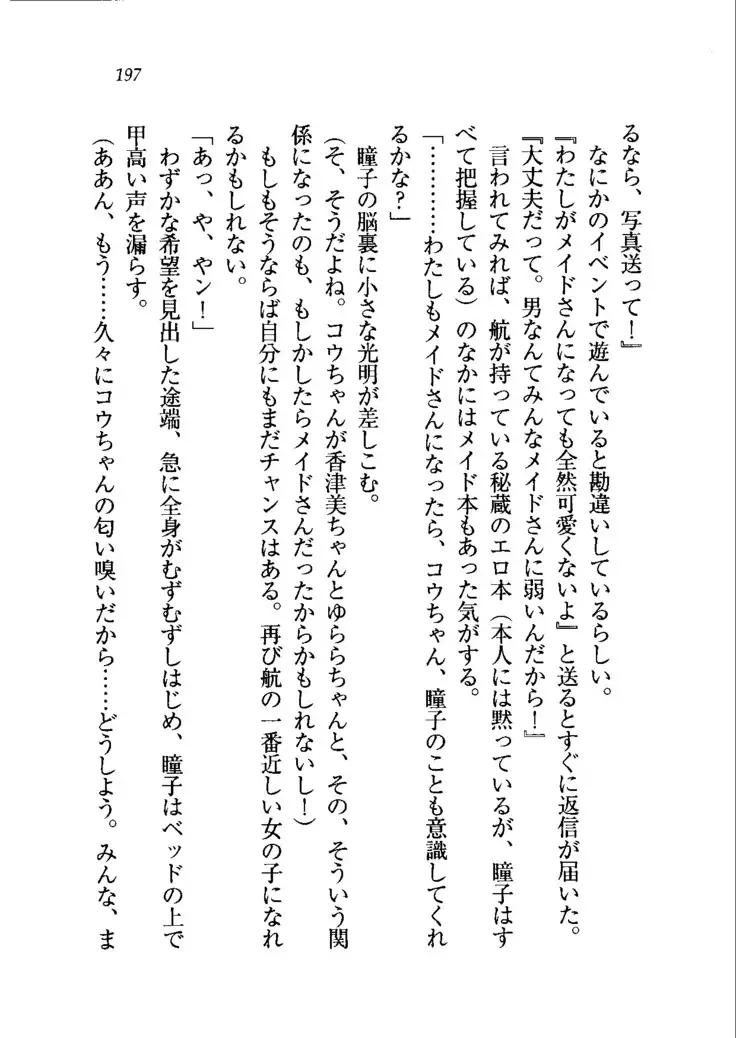 197
るなら、写真送って！』
なにかのイベントで遊んでいると勘違いしているらしい。
『わたしがメイドさんになっても全然可愛くないよ』と送るとすぐに返信が届いた。
『大丈夫だって。男なんてみんなメイドさんに弱いんだから！』
言われてみれば、航が持っている秘蔵のエロ本（本人には黙っているが、瞳子はす
べて把握している）のなかにはメイド本もあった気がする。
「…………わたしもメイドさんになったら、コウちゃん、瞳子のことも意識してくれ
るかな？」
瞳子の脳裏に小さな光明が差しこむ。
（そ、そうだよね。コウちゃんが香津美ちゃんとゆららちゃんと、その、そういう関
係になったのも、もしかしたらメイドさんだったからかもしれないし！）
もしもそうならば自分にもまだチャンスはある。再び航の一番近しい女の子になれ
るかもしれない。
「あっ、や、やン！」
わずかな希望を見出した途端、急に全身がむずむずしはじめ、瞳子はベッドの上で
甲高い声を漏らす。
（ああん、もう……久々にコウちゃんの匂い嗅いだから……どうしよう。みんな、ま